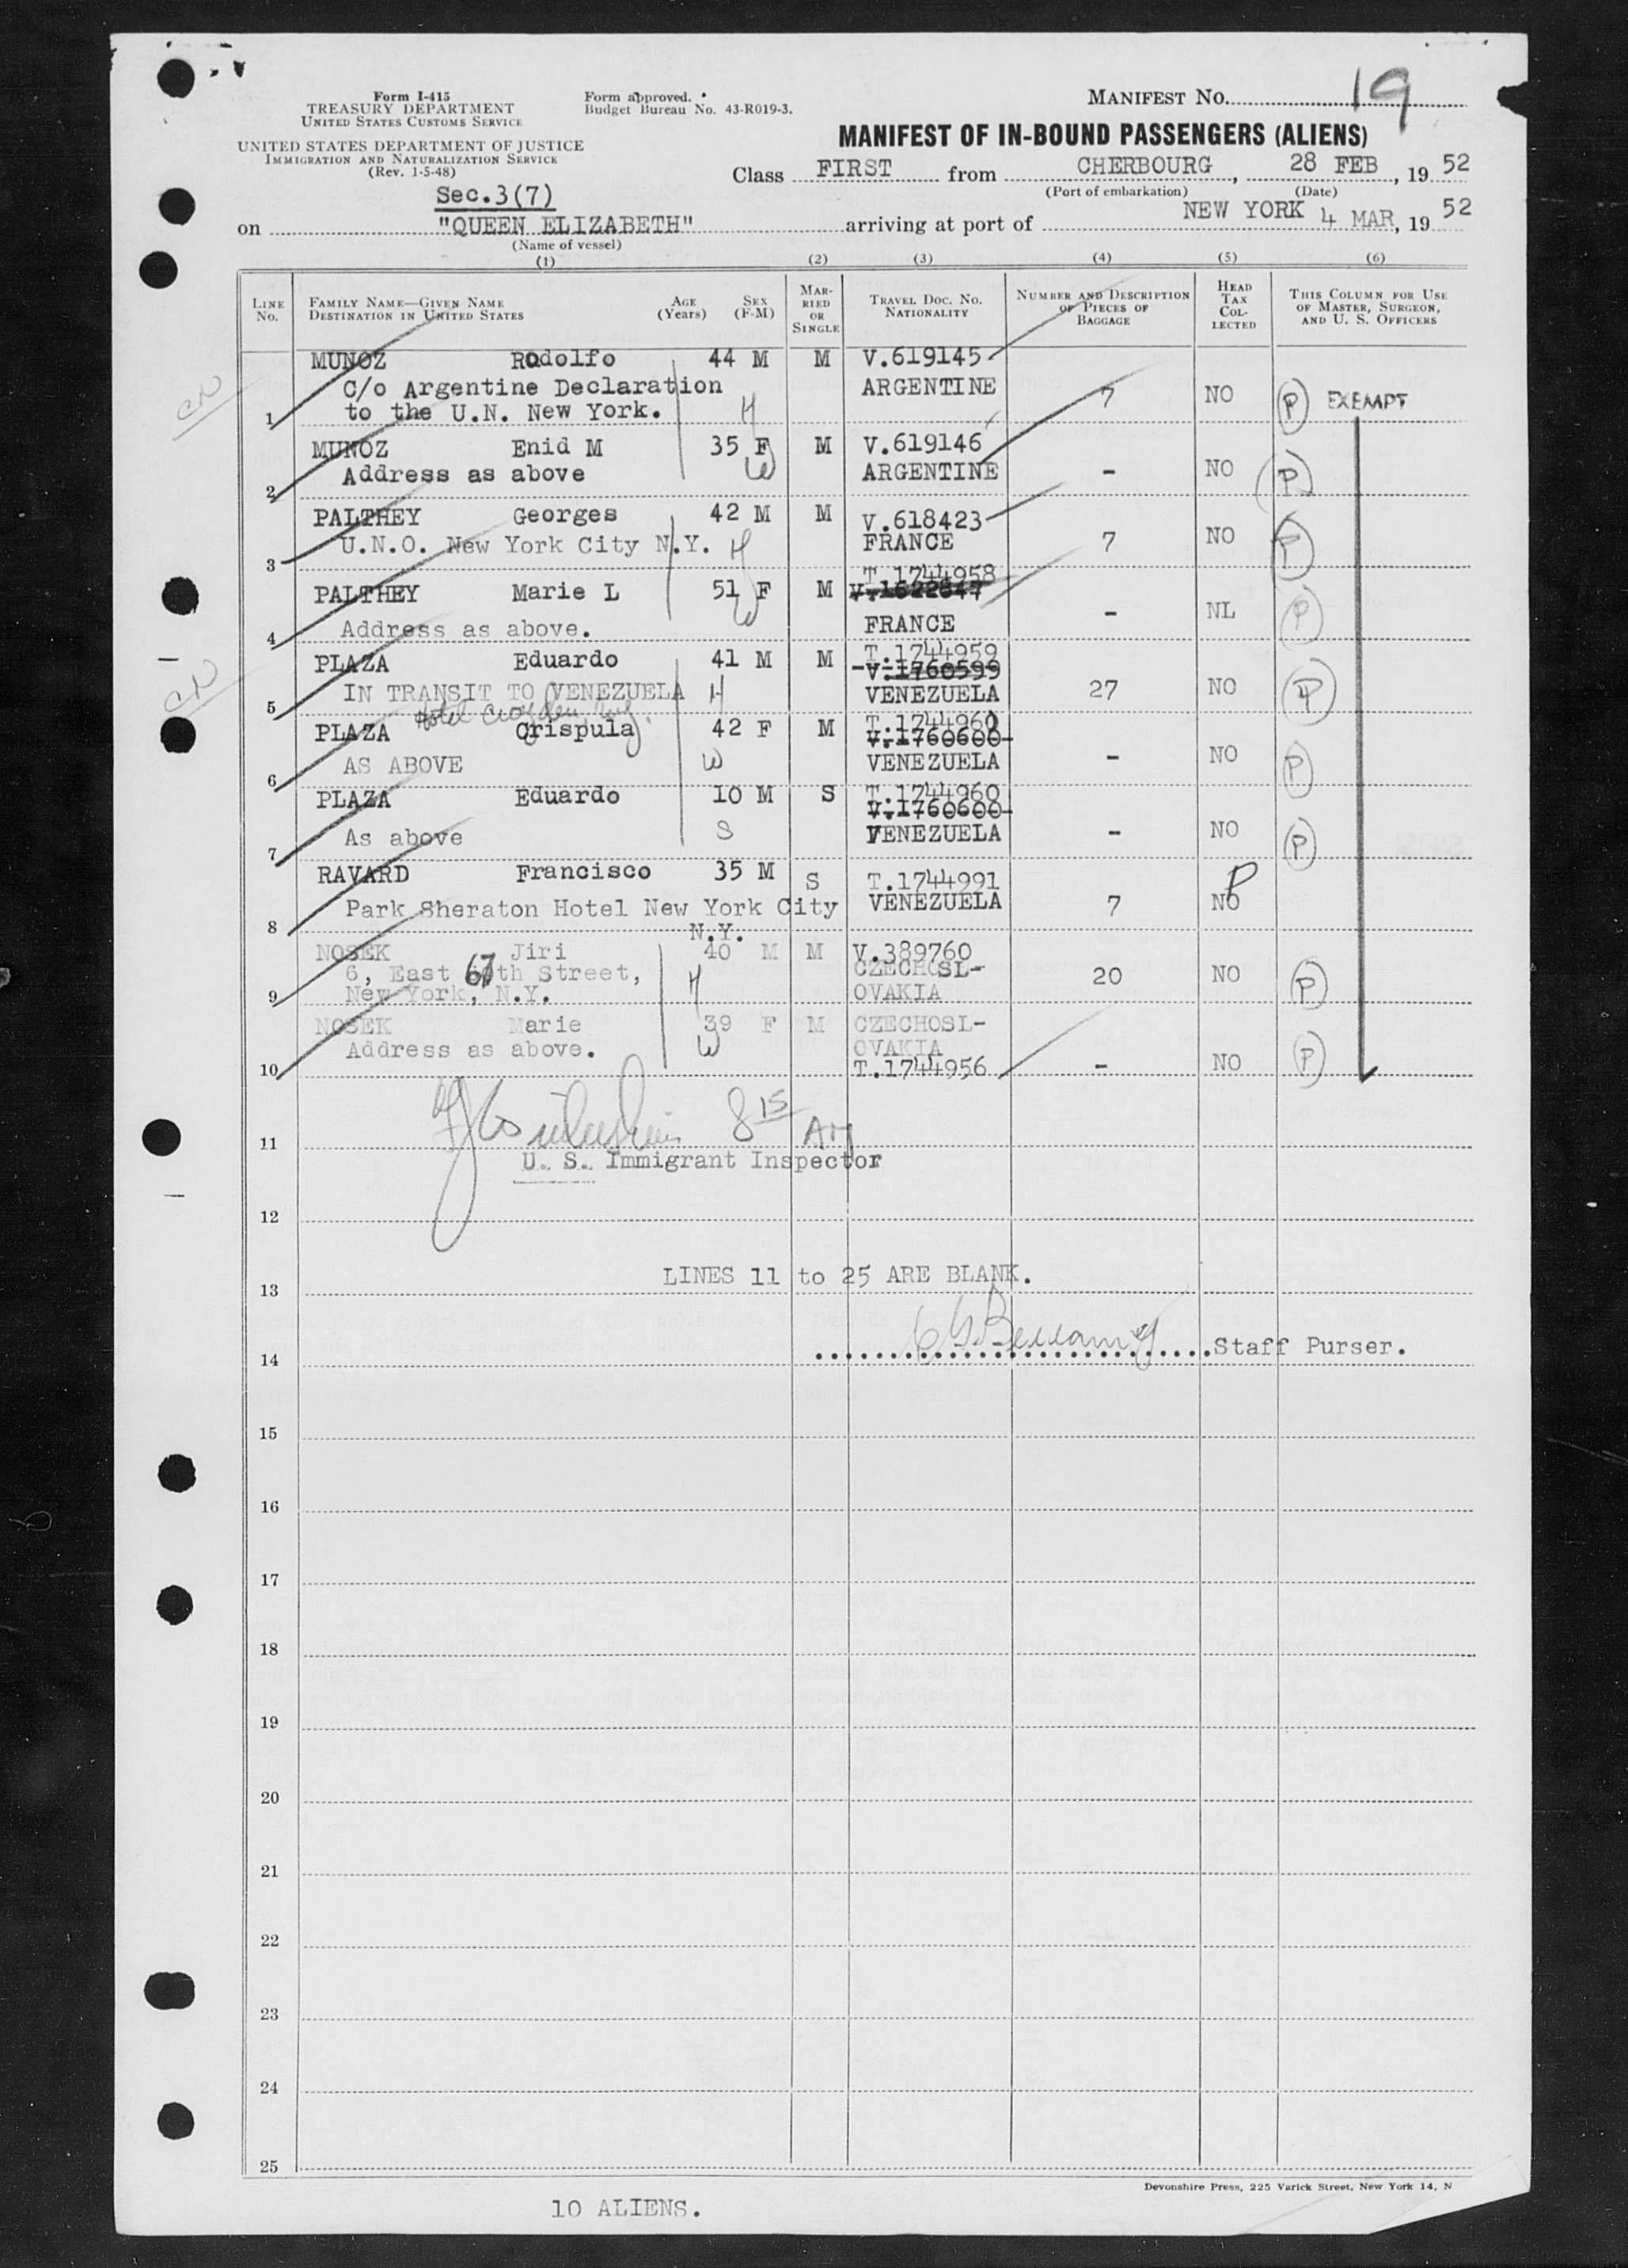 Form I-415
TREASURY DEPARTMENT
UNITED STATES CUSTOMS SERVICE
UNITED STATES DEPARTMENT OF JUSTICE
IMMIGRATION AND NATURALIZATION SERVICE
(Rev. 1-5-48)
Form approved.
Budget Bureau No. 43-R019-3.
MANIFEST NO. 19
MANIFEST OF IN-BOUND PASSENGERS (ALIENS)
Class FIRST from CHERBOURG, 28 FEB, 19 52
(Port of embarkation) (Date)
Sec.3(7)
on "QUEEN ELIZABETH" arriving at port of NEW YORK 4 MAR, 19 52
(Name of vessel)
(1) (2) (3) (4) (5) (6)
LINE No. FAMILY NAME—GIVEN NAME DESTINATION IN UNITED STATES AGE (Years) SEX (F-M) MARRIED OR SINGLE TRAVEL DOC. NO. NATIONALITY NUMBER AND DESCRIPTION OF PIECES OF BAGGAGE HEAD TAX COLLECTED THIS COLUMN FOR USE OF MASTER, SURGEON, AND U. S. OFFICERS
MUNOZ Rodolfo 44 M M V.619145
C/o Argentine Declaration ARGENTINE 7 NO P EXEMPT
1 to the U.N. New York. H
MUNOZ Enid M 35 F M V.619146
W
2 Address as above ARGENTINE - NO P
PALTHEY Georges 42 M M V.618423
3 U.N.O. New York City N.Y. H FRANCE 7 NO P
T.1744958
PALTHEY Marie L 51 F M V.1622847
W
4 Address as above. FRANCE - NL P
T.1744959
PLAZA Eduardo 41 M M V.1760599
5 IN TRANSIT TO VENEZUELA H VENEZUELA 27 NO P
Hotel Croyden
T.1744960
PLAZA Crispula 42 F M V.1760600
6 AS ABOVE W VENEZUELA - NO P
T.1744960
PLAZA Eduardo 10 M S V.1760600
7 As above S VENEZUELA - NO P
RAVARD Francisco 35 M S T.1744991 P
8 Park Sheraton Hotel New York City VENEZUELA 7 NO
N.Y.
NOSEK Jiri 40 M M V.389760
6, East 67th Street, H CZECHOSL- 20 NO P
9 New York, N.Y. OVAKIA
NOSEK Marie 39 F M CZECHOSL-
Address as above. W OVAKIA
10 T.1744956 - NO P
8 15 AM
11
U. S. Immigrant Inspector
12
LINES 11 to 25 ARE BLANK.
13
14 Staff Purser.
15
16
17
18
19
20
21
22
23
24
25
Devonshire Press, 225 Varick Street, New York 14, N
10 ALIENS.